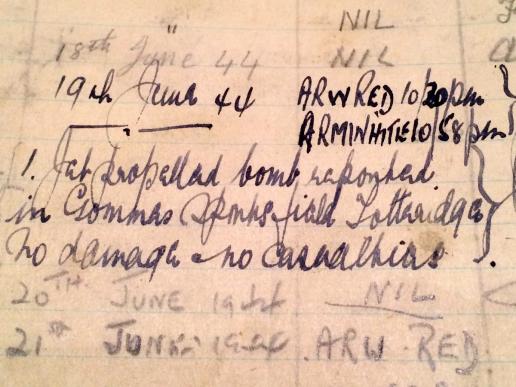 " NIL
18th June 44 NIL
19th June 44 ARW RED 10/20pm
ARMWHITE 10/58 pm
1. Jet propelled bomb reported
in Gommas field Totteridge
No damage no casualties.
20TH JUNE 1944 NIL
21st JUNE 1944 ARW. RED